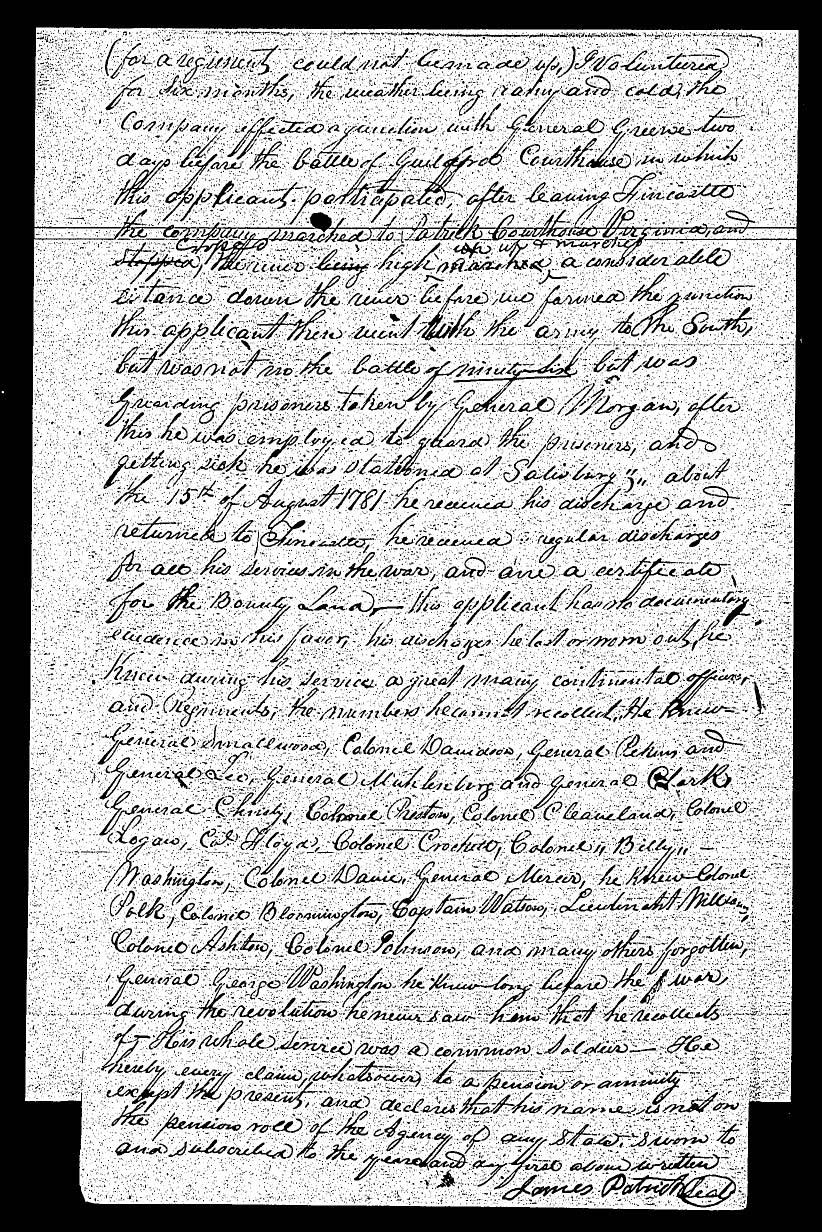 (for a regiment could not be made up,) I Volunteered
for six months, the weather being rainy and cold, the
Company effected a junction with General Greene two
days before the battle of Guilford Courthouse in which
this applicant participated, after leaving Fincastle
the company marched to Patrick Courthouse Virginia, and
Crossed up & marched
stopped, the river being high marched, a considerable
distance down the river before we formed the junction
this applicant then went with the army to the South,
but was not in the battle of ninety-six but was
guarding prisoners taken by General Morgan, after
this he was employed to guard the prisoners, and
getting sick he was stationed at Salisbury „ about
the 15th of August 1781 he received his discharge and
returned to Fincastle, he received regular discharges
for all his services in the war, and a certificate
for the Bounty Land,— this applicant has no documentary
evidence in his favor, his discharges he lost or worn out, he
knew during his service a great many continental officers,
and Regiments, the numbers he cannot recollect, He knew
General Smallwood, Colonel Davidson, General Pickins and
General Lee, General Muhlenburg and General Clark
General Christy, Colonel Preston, Colonel Cleaveland, Colonel
Logan, Col Floyd, Colonel Crockett, Colonel „ Billy „ —
Washington, Colonel Davie, General Mercer, he knew Colonel
Polk, Colonel Blonnington, Captain Watson, Lieutinant Willson,
Colonel Ashton, Colonel Johnson, and many others forgotten,
General George Washington he knew long before the war,
during the revolution he never saw him that he recollects
of — His whole service was a common soldier — He
hereby every claim, whatsoever to a pension or annuity
except the present, and declares that his name is not on
the pension roll of the Agency of any State, sworn to
and subscribed to the year and day first above written
James Patrick Seal